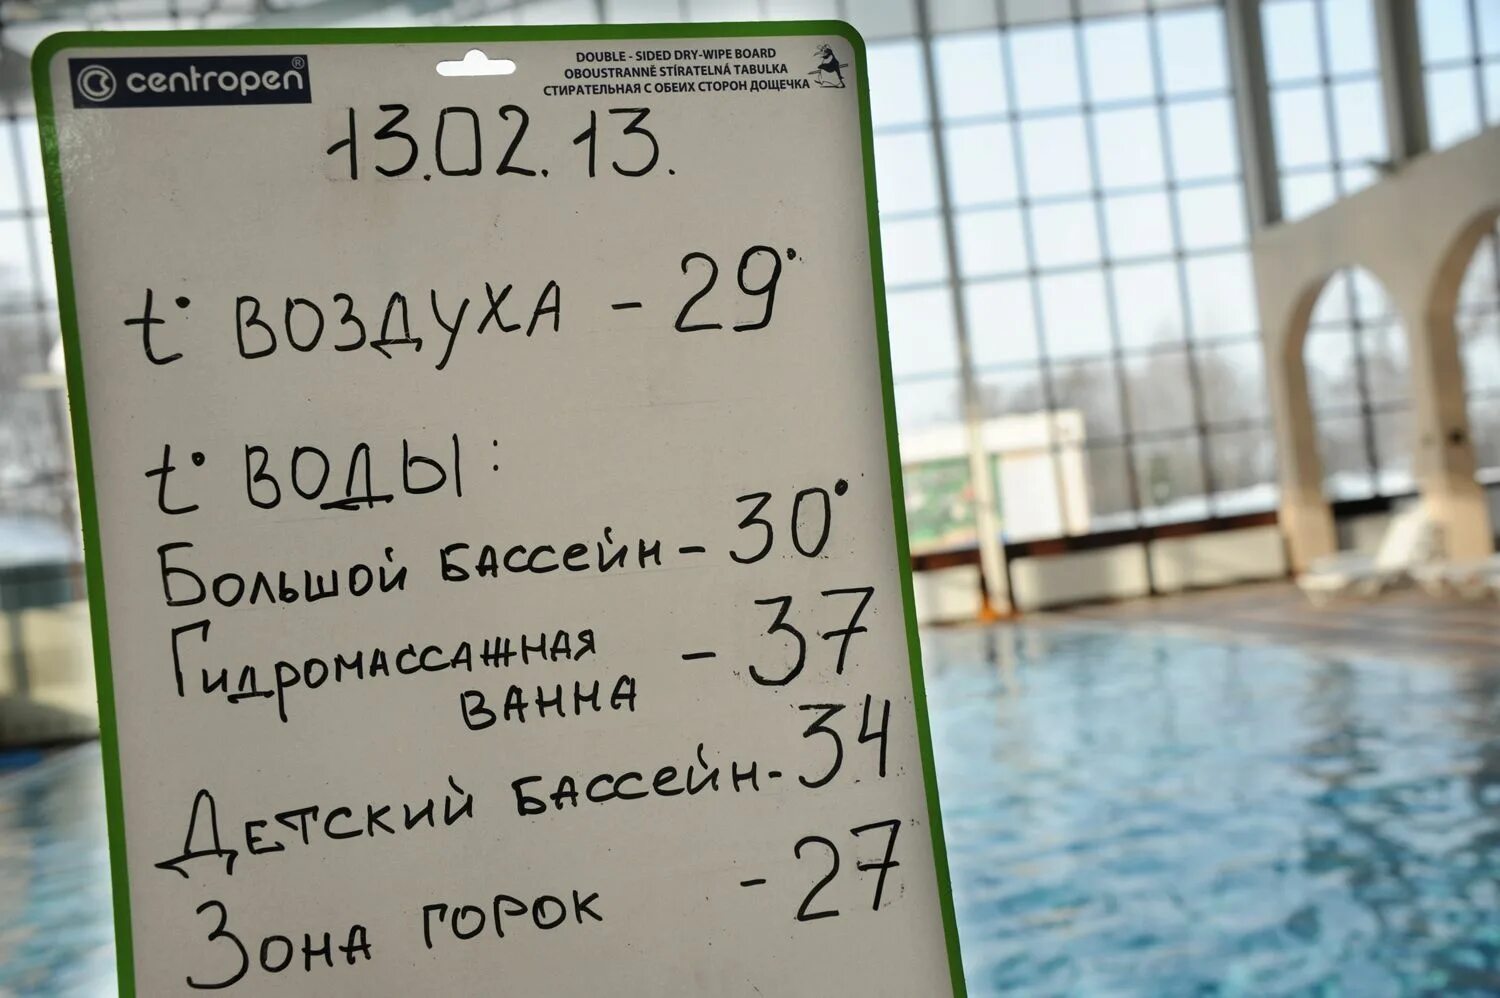 centropen®
DOUBLE - SIDED DRY-WIPE BOARD
OBOUSTRANNĚ STÍRATELNÁ TABULKA
СТИРАТЕЛЬНАЯ С ОБЕИХ СТОРОН ДОЩЕЧКА
13.02.13.
t° ВОЗДУХА - 29°
t° ВОДЫ:
БОЛЬШОЙ БАССЕЙН - 30°
ГИДРОМАССАЖНАЯ
ВАННА - 37
ДЕТСКИЙ БАССЕЙН - 34
ЗОНА ГОРОК - 27